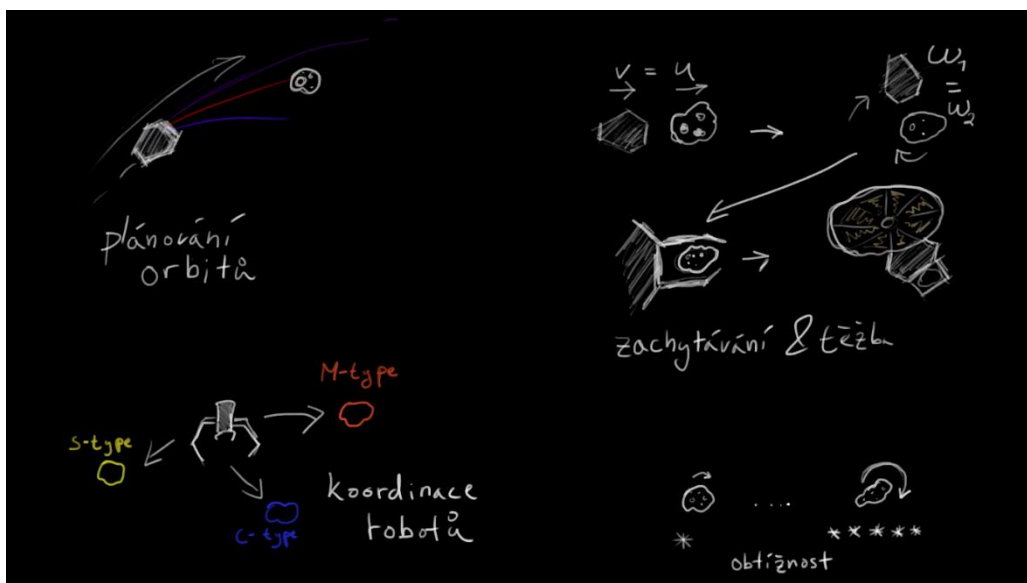 plánování
orbitů
v = u
ω₁
=
ω₂
zachytávání & těžba
M-type
S-type
C-type
koordinace
robotů
* .... *****
obtížnost